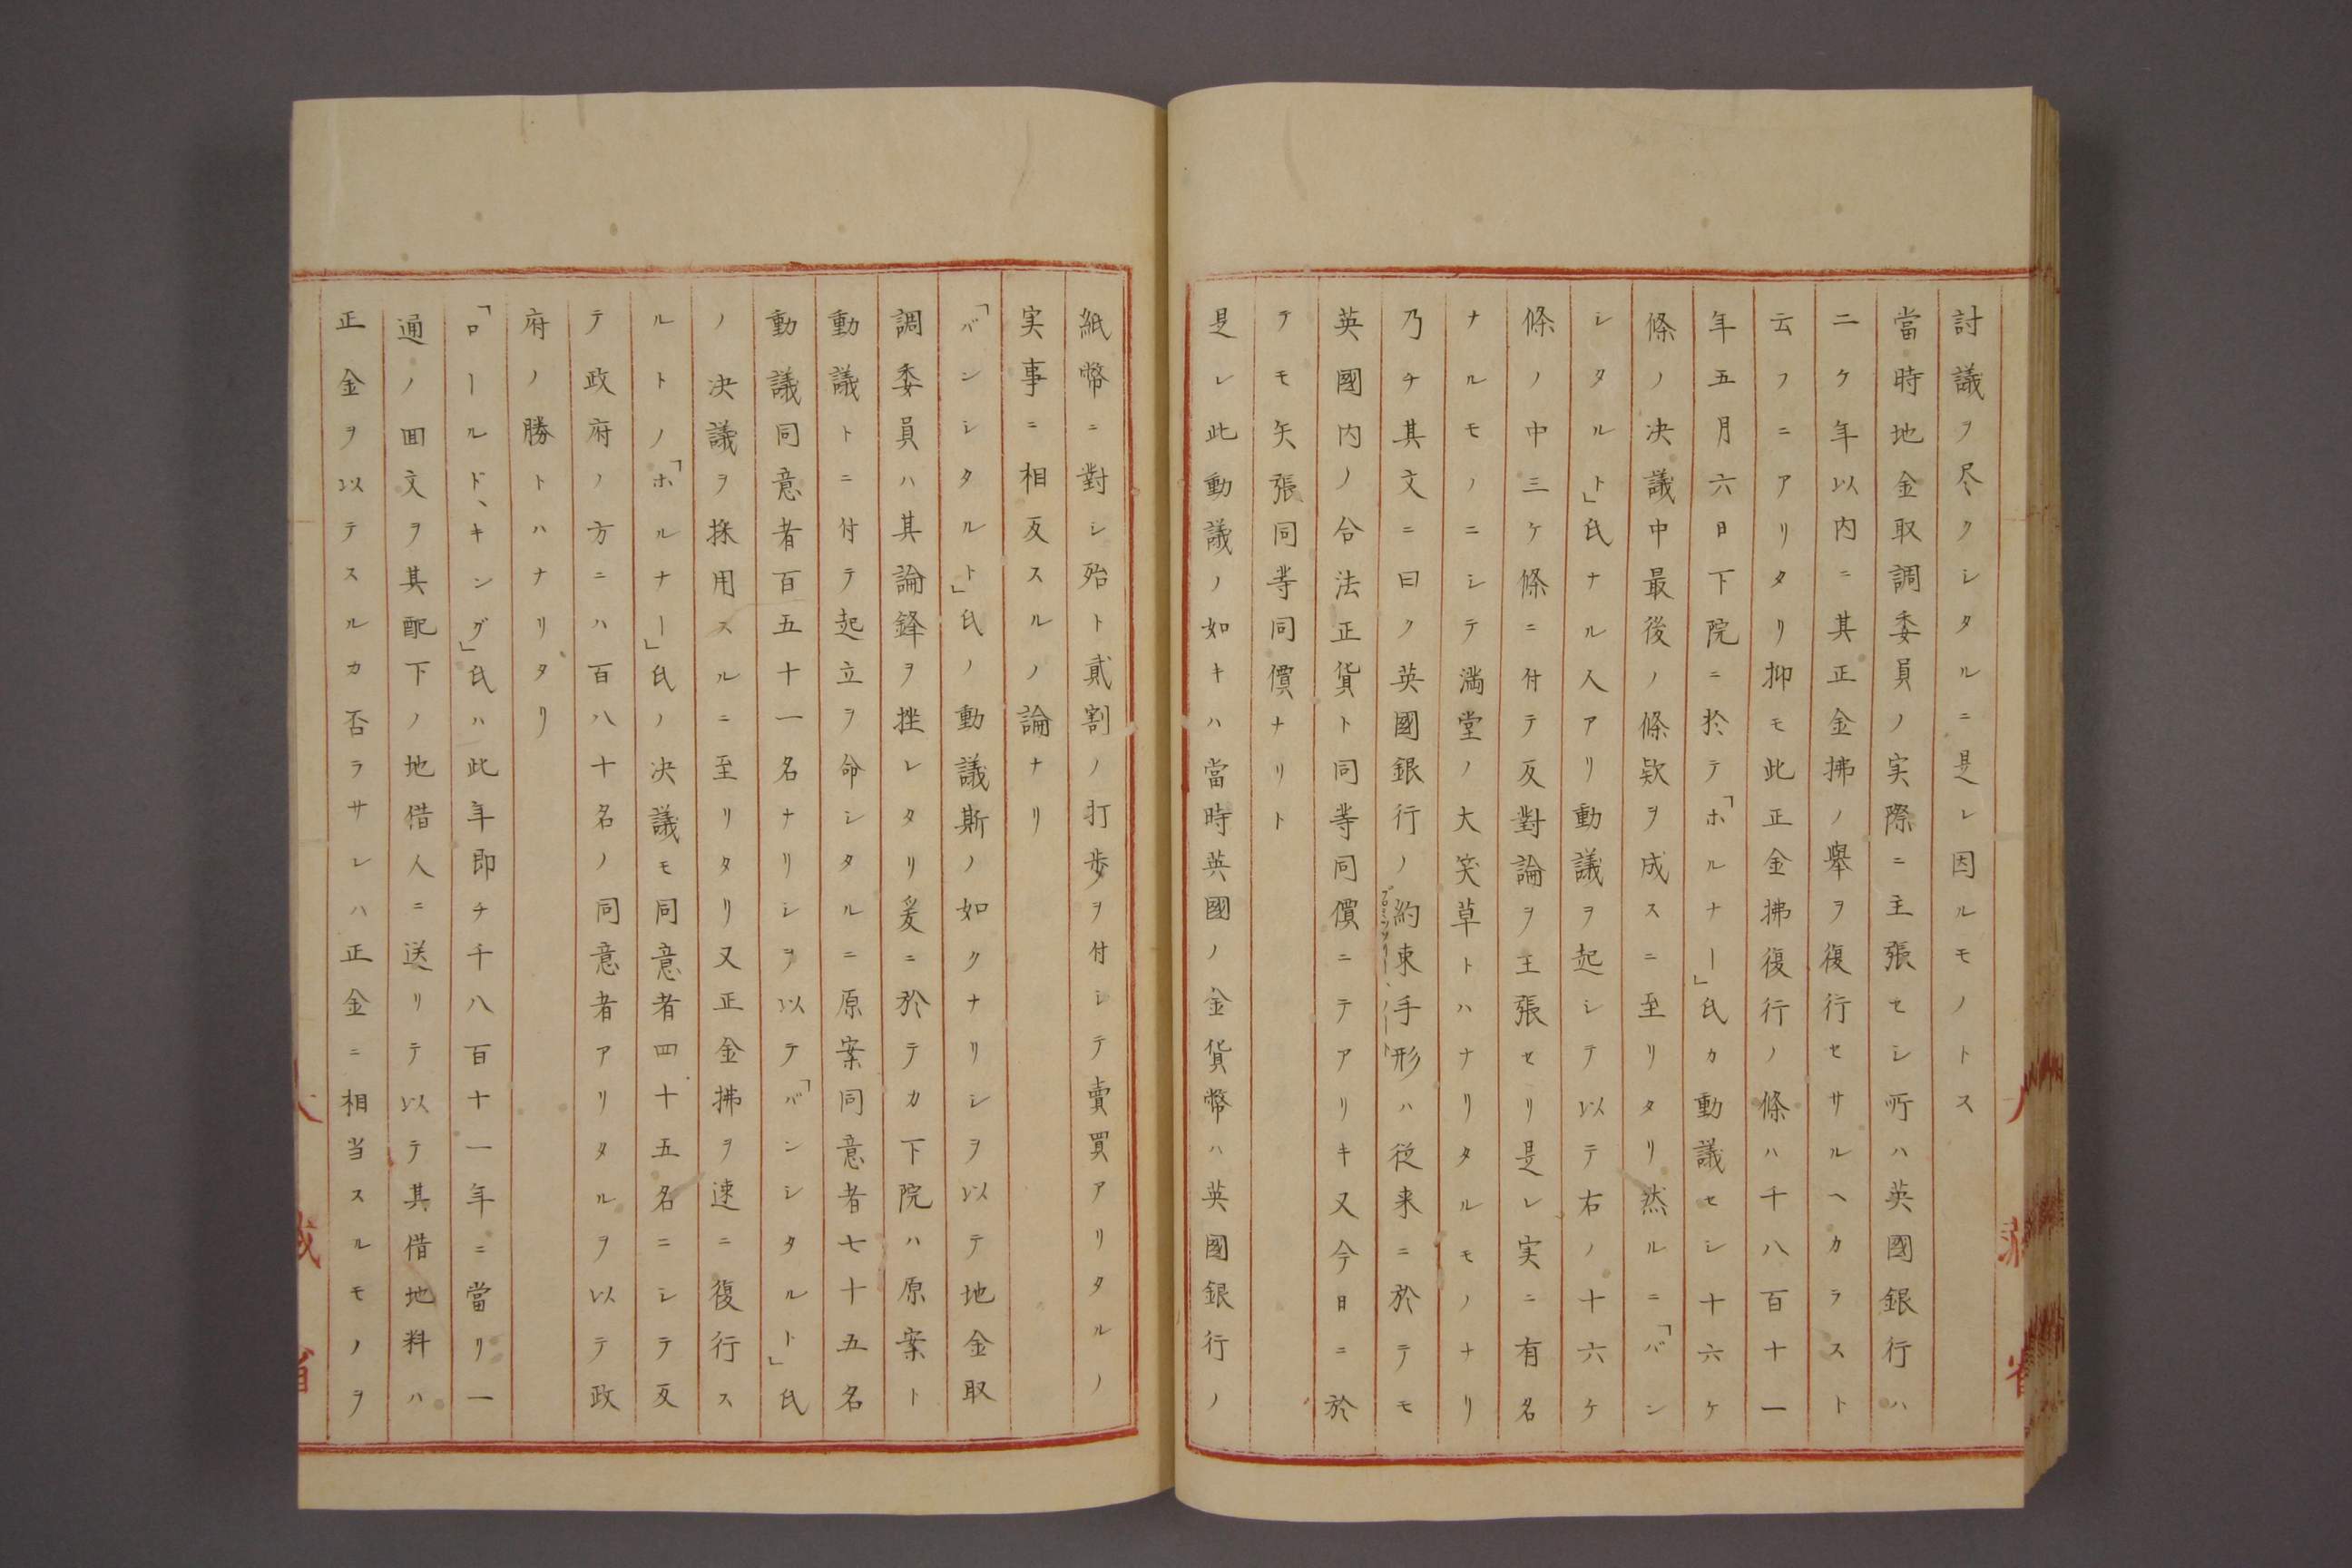 討議ヲ尽クシタルニ是レ因ルモノトス
當時地金取調委員ノ実際ニ主張セシ所ハ英國銀行ハ
二ケ年以内ニ其正金拂ノ擧ヲ復行セサルヘカラスト
云フニアリタリ抑モ此正金拂復行ノ條ハ千八百十一
年五月六日下院ニ於テ「ホルナー」氏カ動議セシ十六ケ
條ノ决議中最後ノ條欵ヲ成スニ至リタリ然ルニ「バン
シタルト」氏ナル人アリ動議ヲ起シテ以テ右ノ十六ケ
條ノ中三ケ條ニ付テ反對論ヲ主張セリ是レ実ニ有名
ナルモノニシテ満堂ノ大笑草トハナリタルモノナリ
乃チ其文ニ曰ク英國銀行ノ約束手形ハ従来ニ於テモ
プロミソリー、ノート
英國内ノ合法正貨ト同等同價ニテアリキ又今日ニ於
テモ矢張同等同價ナリト
是レ此動議ノ如キハ當時英國ノ金貨幣ハ英國銀行ノ
紙幣ニ對シ殆ト貳割ノ打歩ヲ付シテ賣買アリタルノ
実事ニ相反スルノ論ナリ
「バンシタルト」氏ノ動議斯ノ如クナリシヲ以テ地金取
調委員ハ其論鋒ヲ挫レタリ爰ニ於テカ下院ハ原案ト
動議トニ付テ起立ヲ命シタルニ原案同意者七十五名
動議同意者百五十一名ナリシヲ以テ「バンシタルト」氏
ノ决議ヲ採用スルニ至リタリ又正金拂ヲ速ニ復行ス
ルトノ「ホルナー」氏ノ决議モ同意者四十五名ニシテ反
テ政府ノ方ニハ百八十名ノ同意者アリタルヲ以テ政
府ノ勝トハナリタリ
「ロールド、キング」氏ハ此年即チ千八百十一年ニ當リ一
通ノ囬文ヲ其配下ノ地借人ニ送リテ以テ其借地料ハ
正金ヲ以テスルカ否ラサレハ正金ニ相当スルモノヲ